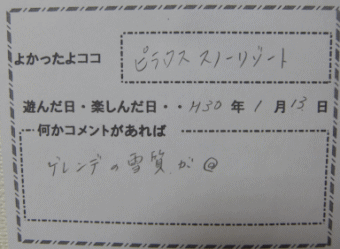 よかったよココ ピラタス スノーリゾート
遊んだ日・楽しんだ日・・H30 年 1 月 13 日
何かコメントがあれば
ゲレンデの雪質が@